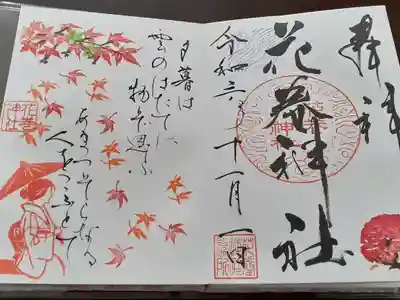 奉拝
花巻神社
令和六年十一月一日
夕暮は
雲のはたてに
物ぞ思ふ
あまつそらなる
人をこふとて